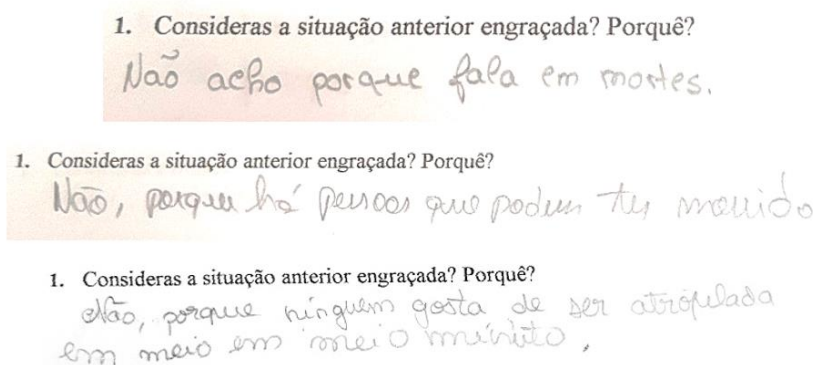 1. Consideras a situação anterior engraçada? Porquê?
Não acho porque fala em mortes.
1. Consideras a situação anterior engraçada? Porquê?
Não, porque há pessoas que podem ter morrido
1. Consideras a situação anterior engraçada? Porquê?
Não, porque ninguém gosta de ser atropelada
em meio em meio minuto,